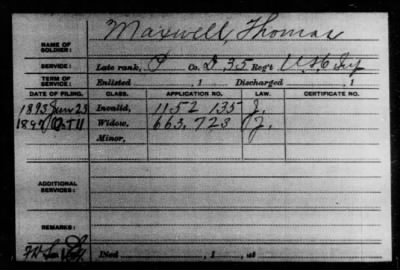 Maxwell, Thomas
NAME OF SOLDIER:
SERVICE: Late rank, P Co. D, 35 Reg't U.S.C. Inf
TERM OF SERVICE: Enlisted , 1 Discharged , 1
DATE OF FILING. CLASS. APPLICATION NO. LAW. CERTIFICATE NO.
1893 Jun 23 Invalid, 1152 135 J.
Widow, 663,723 J.
Minor,
ADDITIONAL SERVICES:
REMARKS:
Died , 1 , at